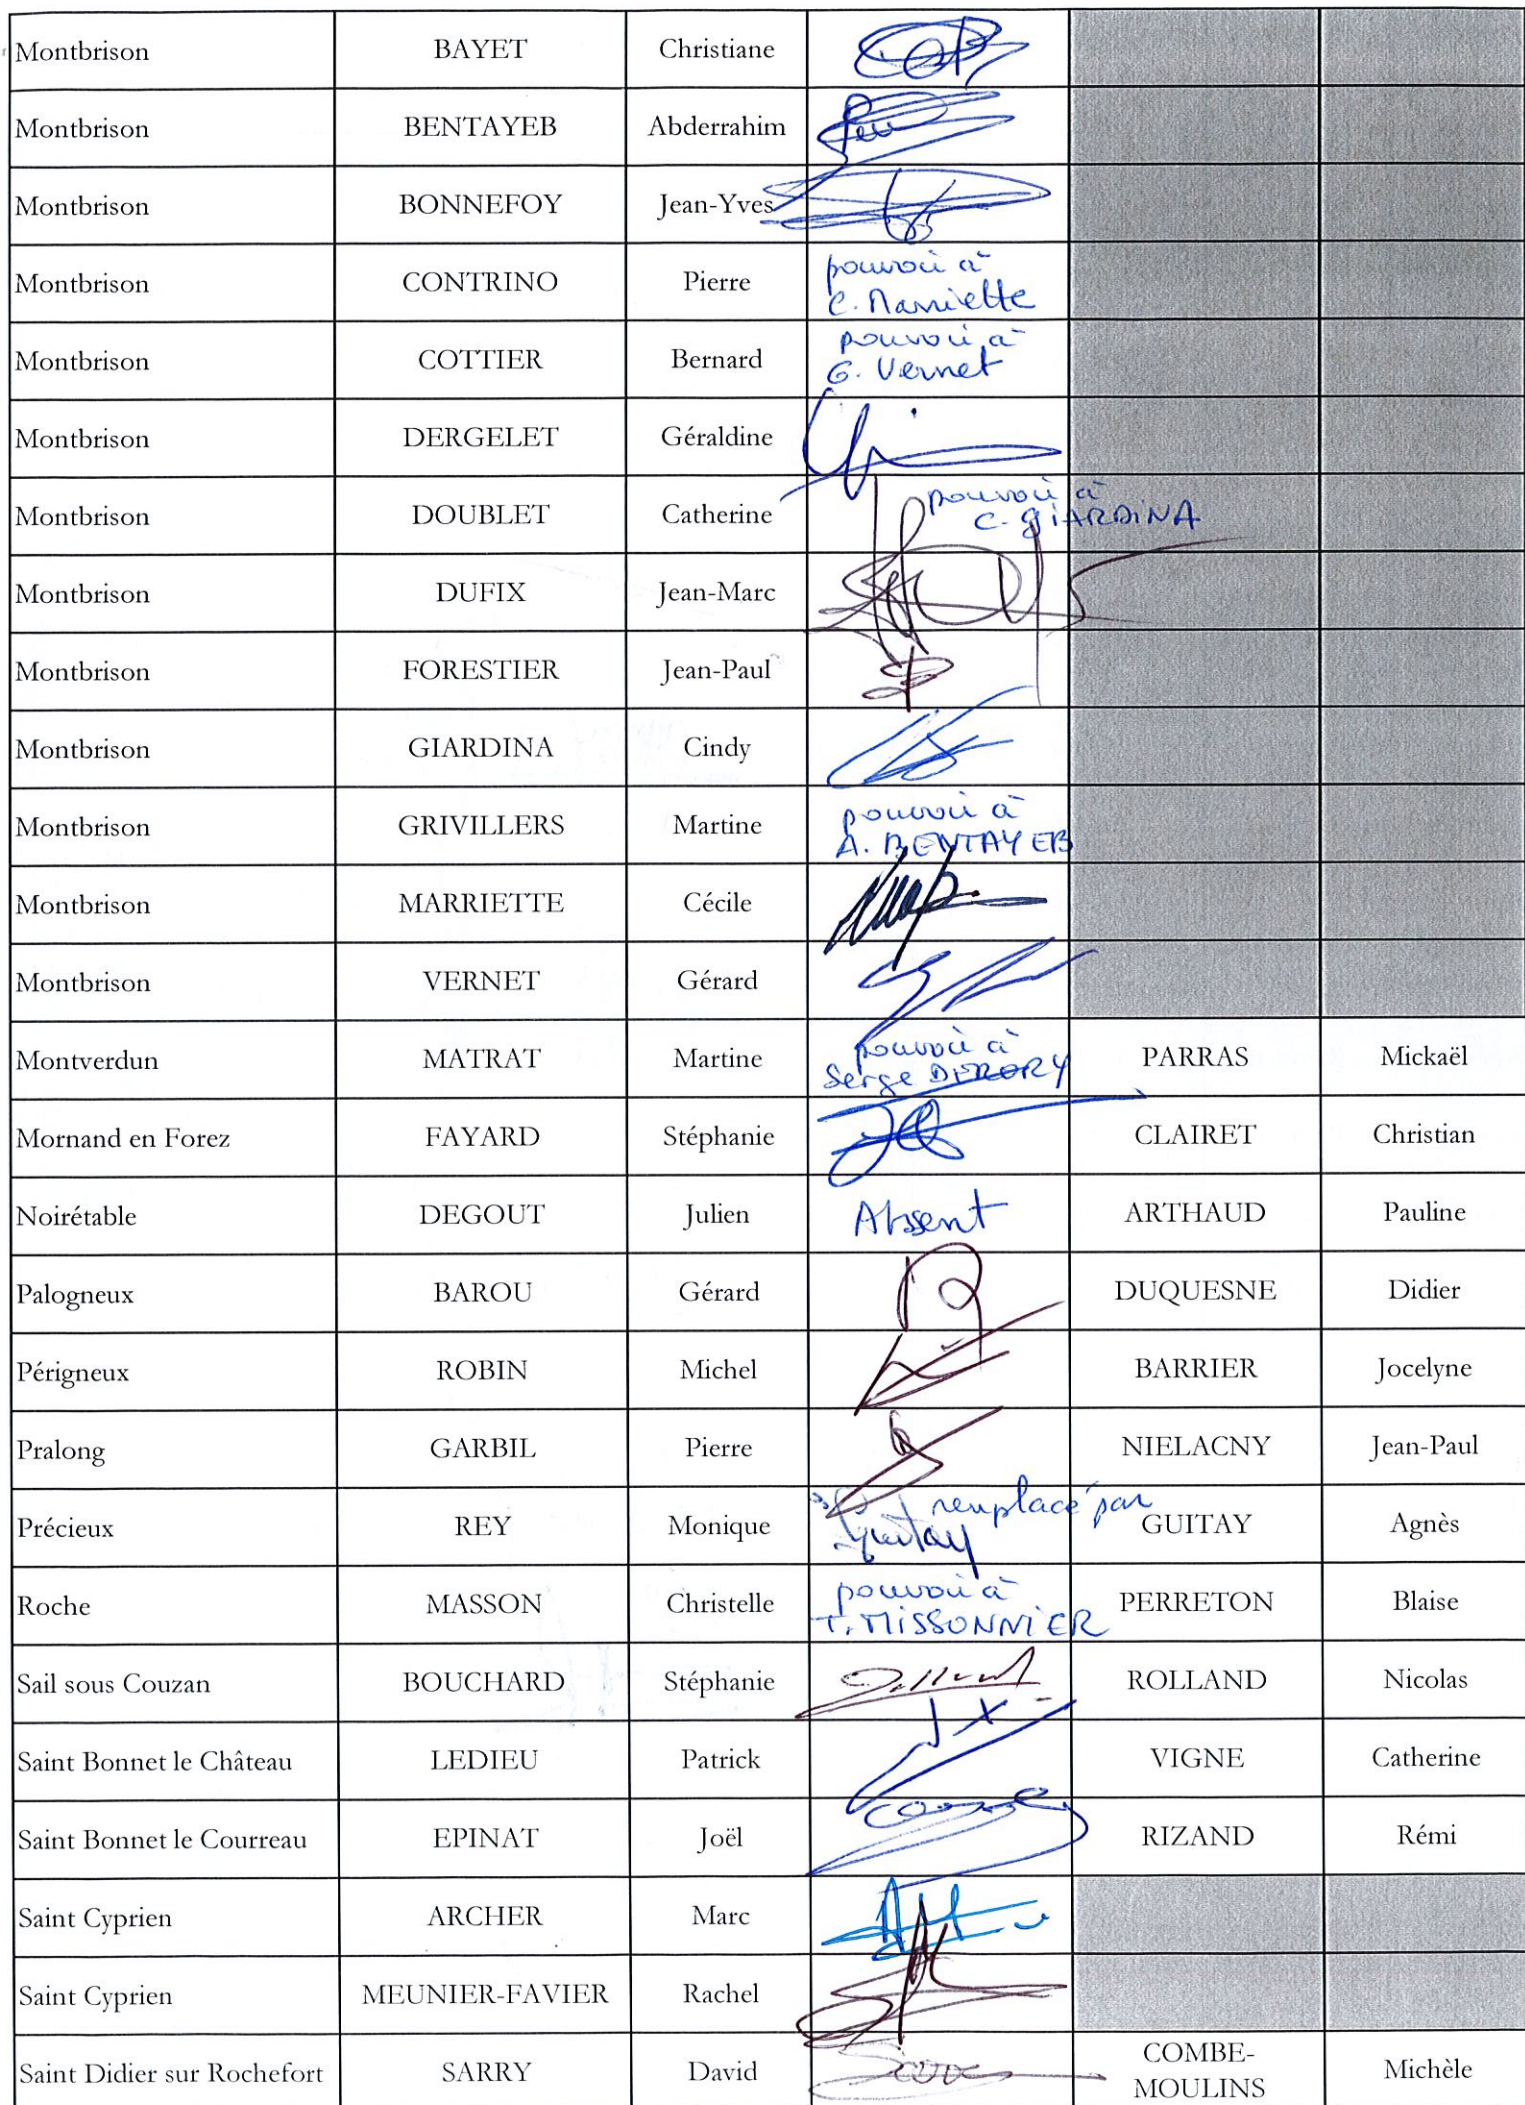 Montbrison BAYET Christiane
Montbrison BENTAYEB Abderrahim
Montbrison BONNEFOY Jean-Yves
Montbrison CONTRINO Pierre pouvoir à
C. Marriette
Montbrison COTTIER Bernard pouvoir à
G. Vernet
Montbrison DERGELET Géraldine
Montbrison DOUBLET Catherine pouvoir à
C. GIARDINA
Montbrison DUFIX Jean-Marc
Montbrison FORESTIER Jean-Paul
Montbrison GIARDINA Cindy
Montbrison GRIVILLERS Martine pouvoir à
A. BENTAYEB
Montbrison MARRIETTE Cécile
Montbrison VERNET Gérard
Montverdun MATRAT Martine pouvoir à PARRAS Mickaël
Serge DERORY
Mornand en Forez FAYARD Stéphanie CLAIRET Christian
Noirétable DEGOUT Julien Absent ARTHAUD Pauline
Palogneux BAROU Gérard DUQUESNE Didier
Périgneux ROBIN Michel BARRIER Jocelyne
Pralong GARBIL Pierre NIELACNY Jean-Paul
Précieux REY Monique remplacé par GUITAY Agnès
Guitay
Roche MASSON Christelle pouvoir à PERRETON Blaise
T. MISSONNIER
Sail sous Couzan BOUCHARD Stéphanie ROLLAND Nicolas
Saint Bonnet le Château LEDIEU Patrick VIGNE Catherine
Saint Bonnet le Courreau EPINAT Joël RIZAND Rémi
Saint Cyprien ARCHER Marc
Saint Cyprien MEUNIER-FAVIER Rachel
Saint Didier sur Rochefort SARRY David COMBE-
MOULINS Michèle